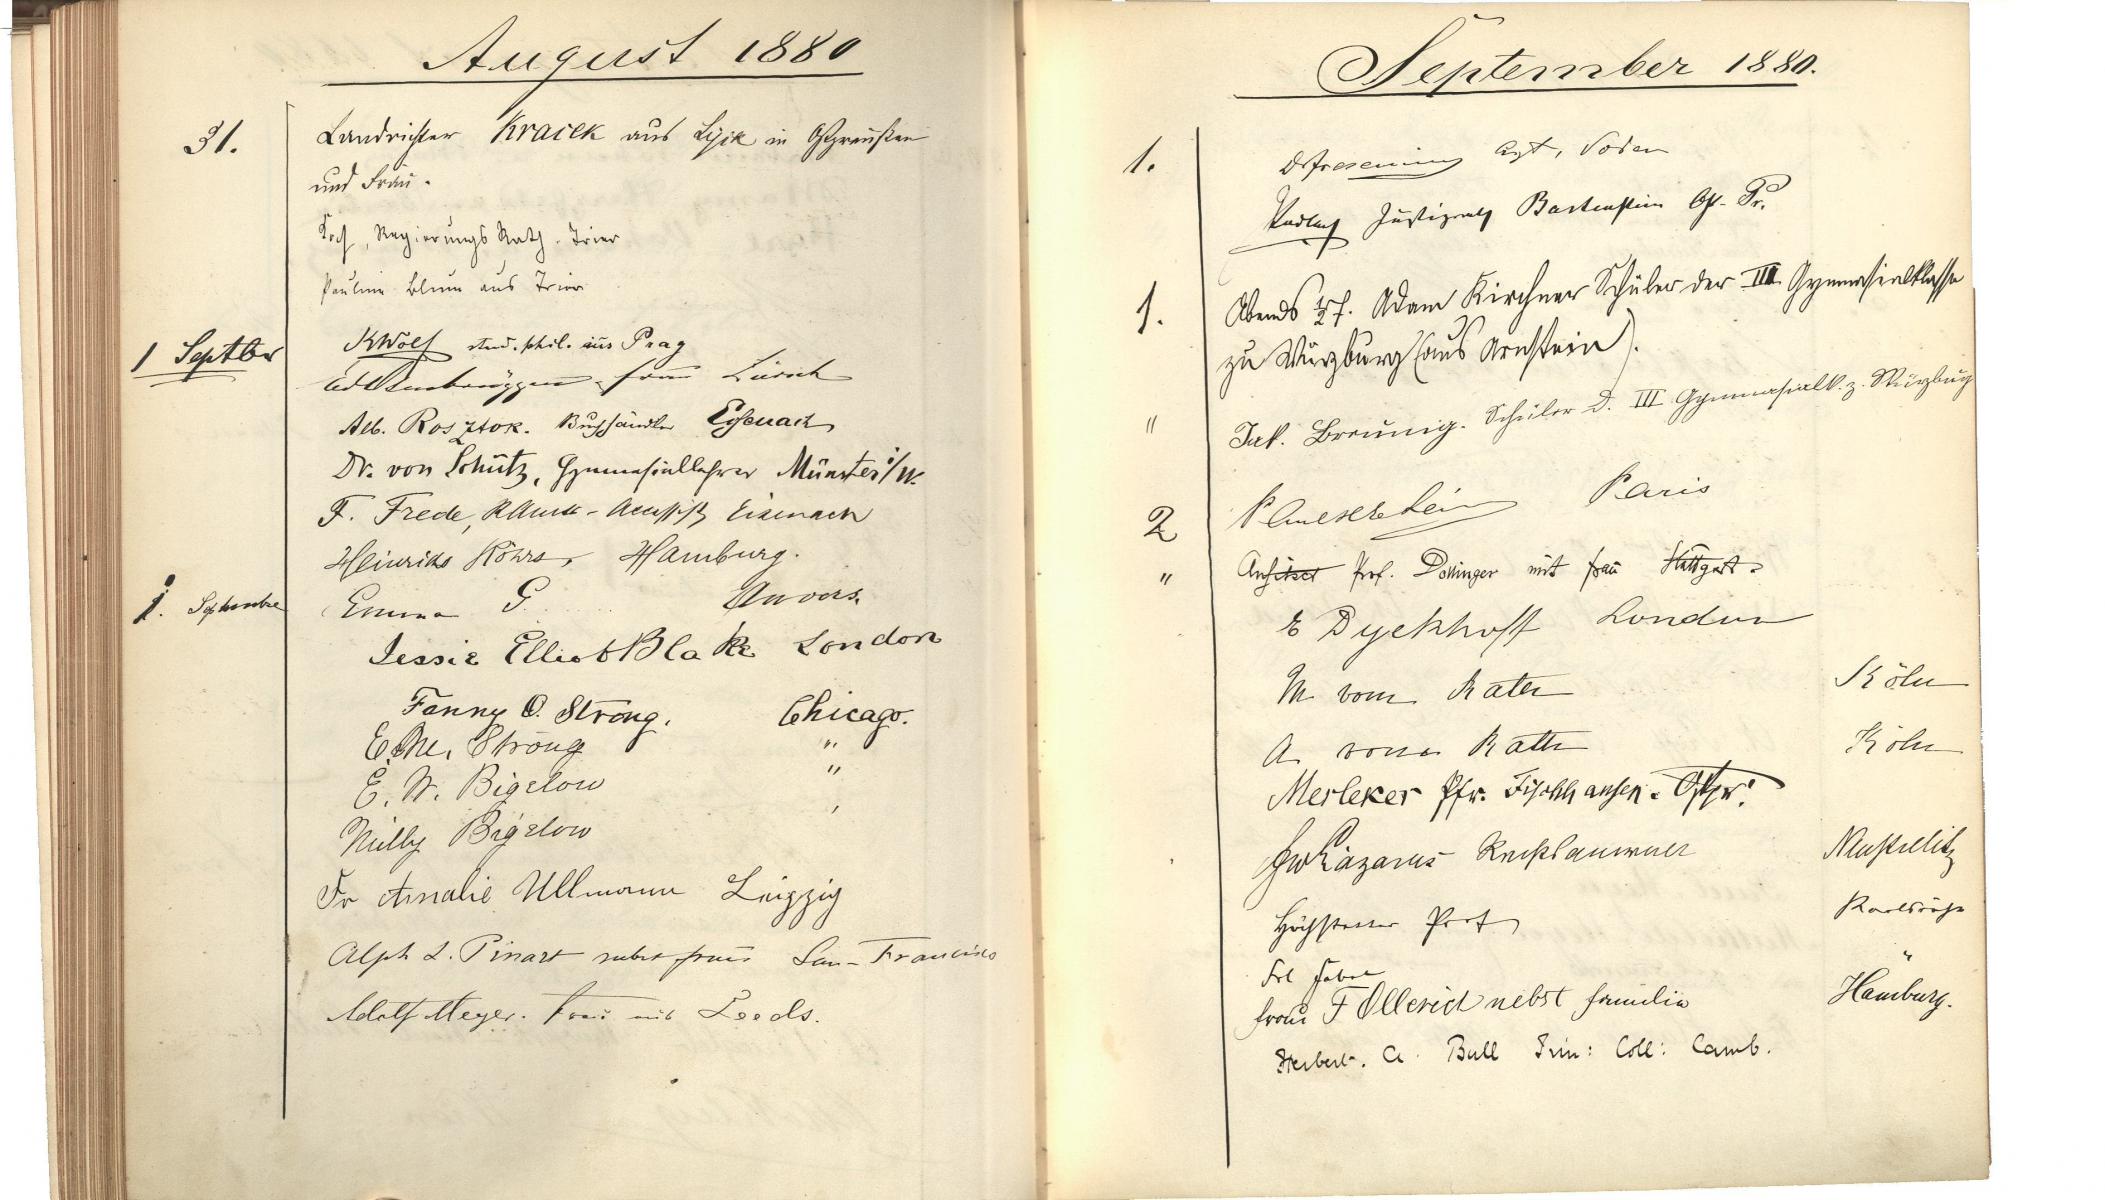 August 1880
31. Landrichter Kracek aus Lyck in Ostpreußen
und Frau.
Koch, Regierungs Rath. Trier
Pauline Blum aus Trier
1 Septber KWolf stud. phil. aus Prag
Frau Zürich
Alb. Rosztok. Buchhändler Eisenach
Dr. von Schütz, Gymnasiallehrer Münster i/W.
F. Frede, Eisenach
Heinrich Röhrs, Hamburg.
1. Septembre Emma G Anvers.
Jessie Elliot Blake London
Fanny O. Strong. Chicago.
E. M. Strong "
E. W. Bigelow "
Nilly Bigelow "
Fr Amalie Ullmann Leipzig
Alph L. Pinart nebst Frau San-Francisco
Adolf Meyer. Frau aus Leeds.
September 1880.
1. Dr Fresenius Arzt, Soden
Justizrath Bartenstein Ost. Pr.
1. Abends 1/2 7. Adam Kirchner Schüler der III Gymnasialklasse
zu Würzburg (aus Arnstein).
" Jak. Breunig. Schüler d. III Gymnasialk. z. Würzburg
2 Paris
" Architect Prof. Dollinger mit Frau Stuttgart.
E Dyckhoff London
M vom Rath Köln
A vom Rath Köln
Merleker Pfr. Fischhausen. Ostpr.
Lazarus Rechtsanwalt Neustrelitz
Höchstetter Prof Karlsruhe
Frl "
Frau F Ollerich nebst Familie Hamburg.
Herbert. A. Bull Trin: Coll: Camb.